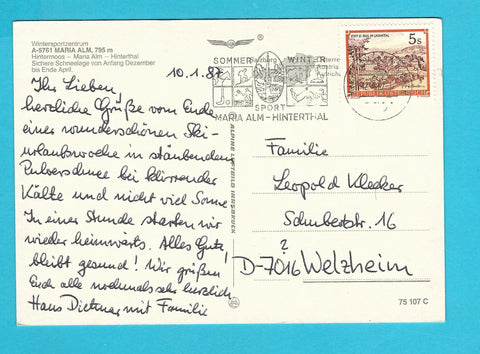 Wintersportzentrum
A-5761 MARIA ALM, 795 m
Hintermoos – Maria Alm – Hinterthal
Sichere Schneelage von Anfang Dezember
bis Ende April.
10.1.87
Ihr Lieben,
herzliche Grüße vom Ende
einer wunderschönen Ski-
urlaubswoche in stäubenden
Pulverschnee bei klirrender
Kälte und nicht viel Sonne
In einer Stunde starten wir
wieder heimwärts. Alles Gute,
bleibt gesund! Wir grüßen
Euch alle nochmals sehr herzlich
Hans Dietmar mit Familie
ALPINE LUFTBILD INNSBRUCK
SOMMER WINTER
SPORT
MARIA ALM - HINTERTHAL
5s
REPUBLIK ÖSTERREICH
Familie
Leopold Klecker
Schubertstr. 16
?
D-7016 Welzheim
75 107 C